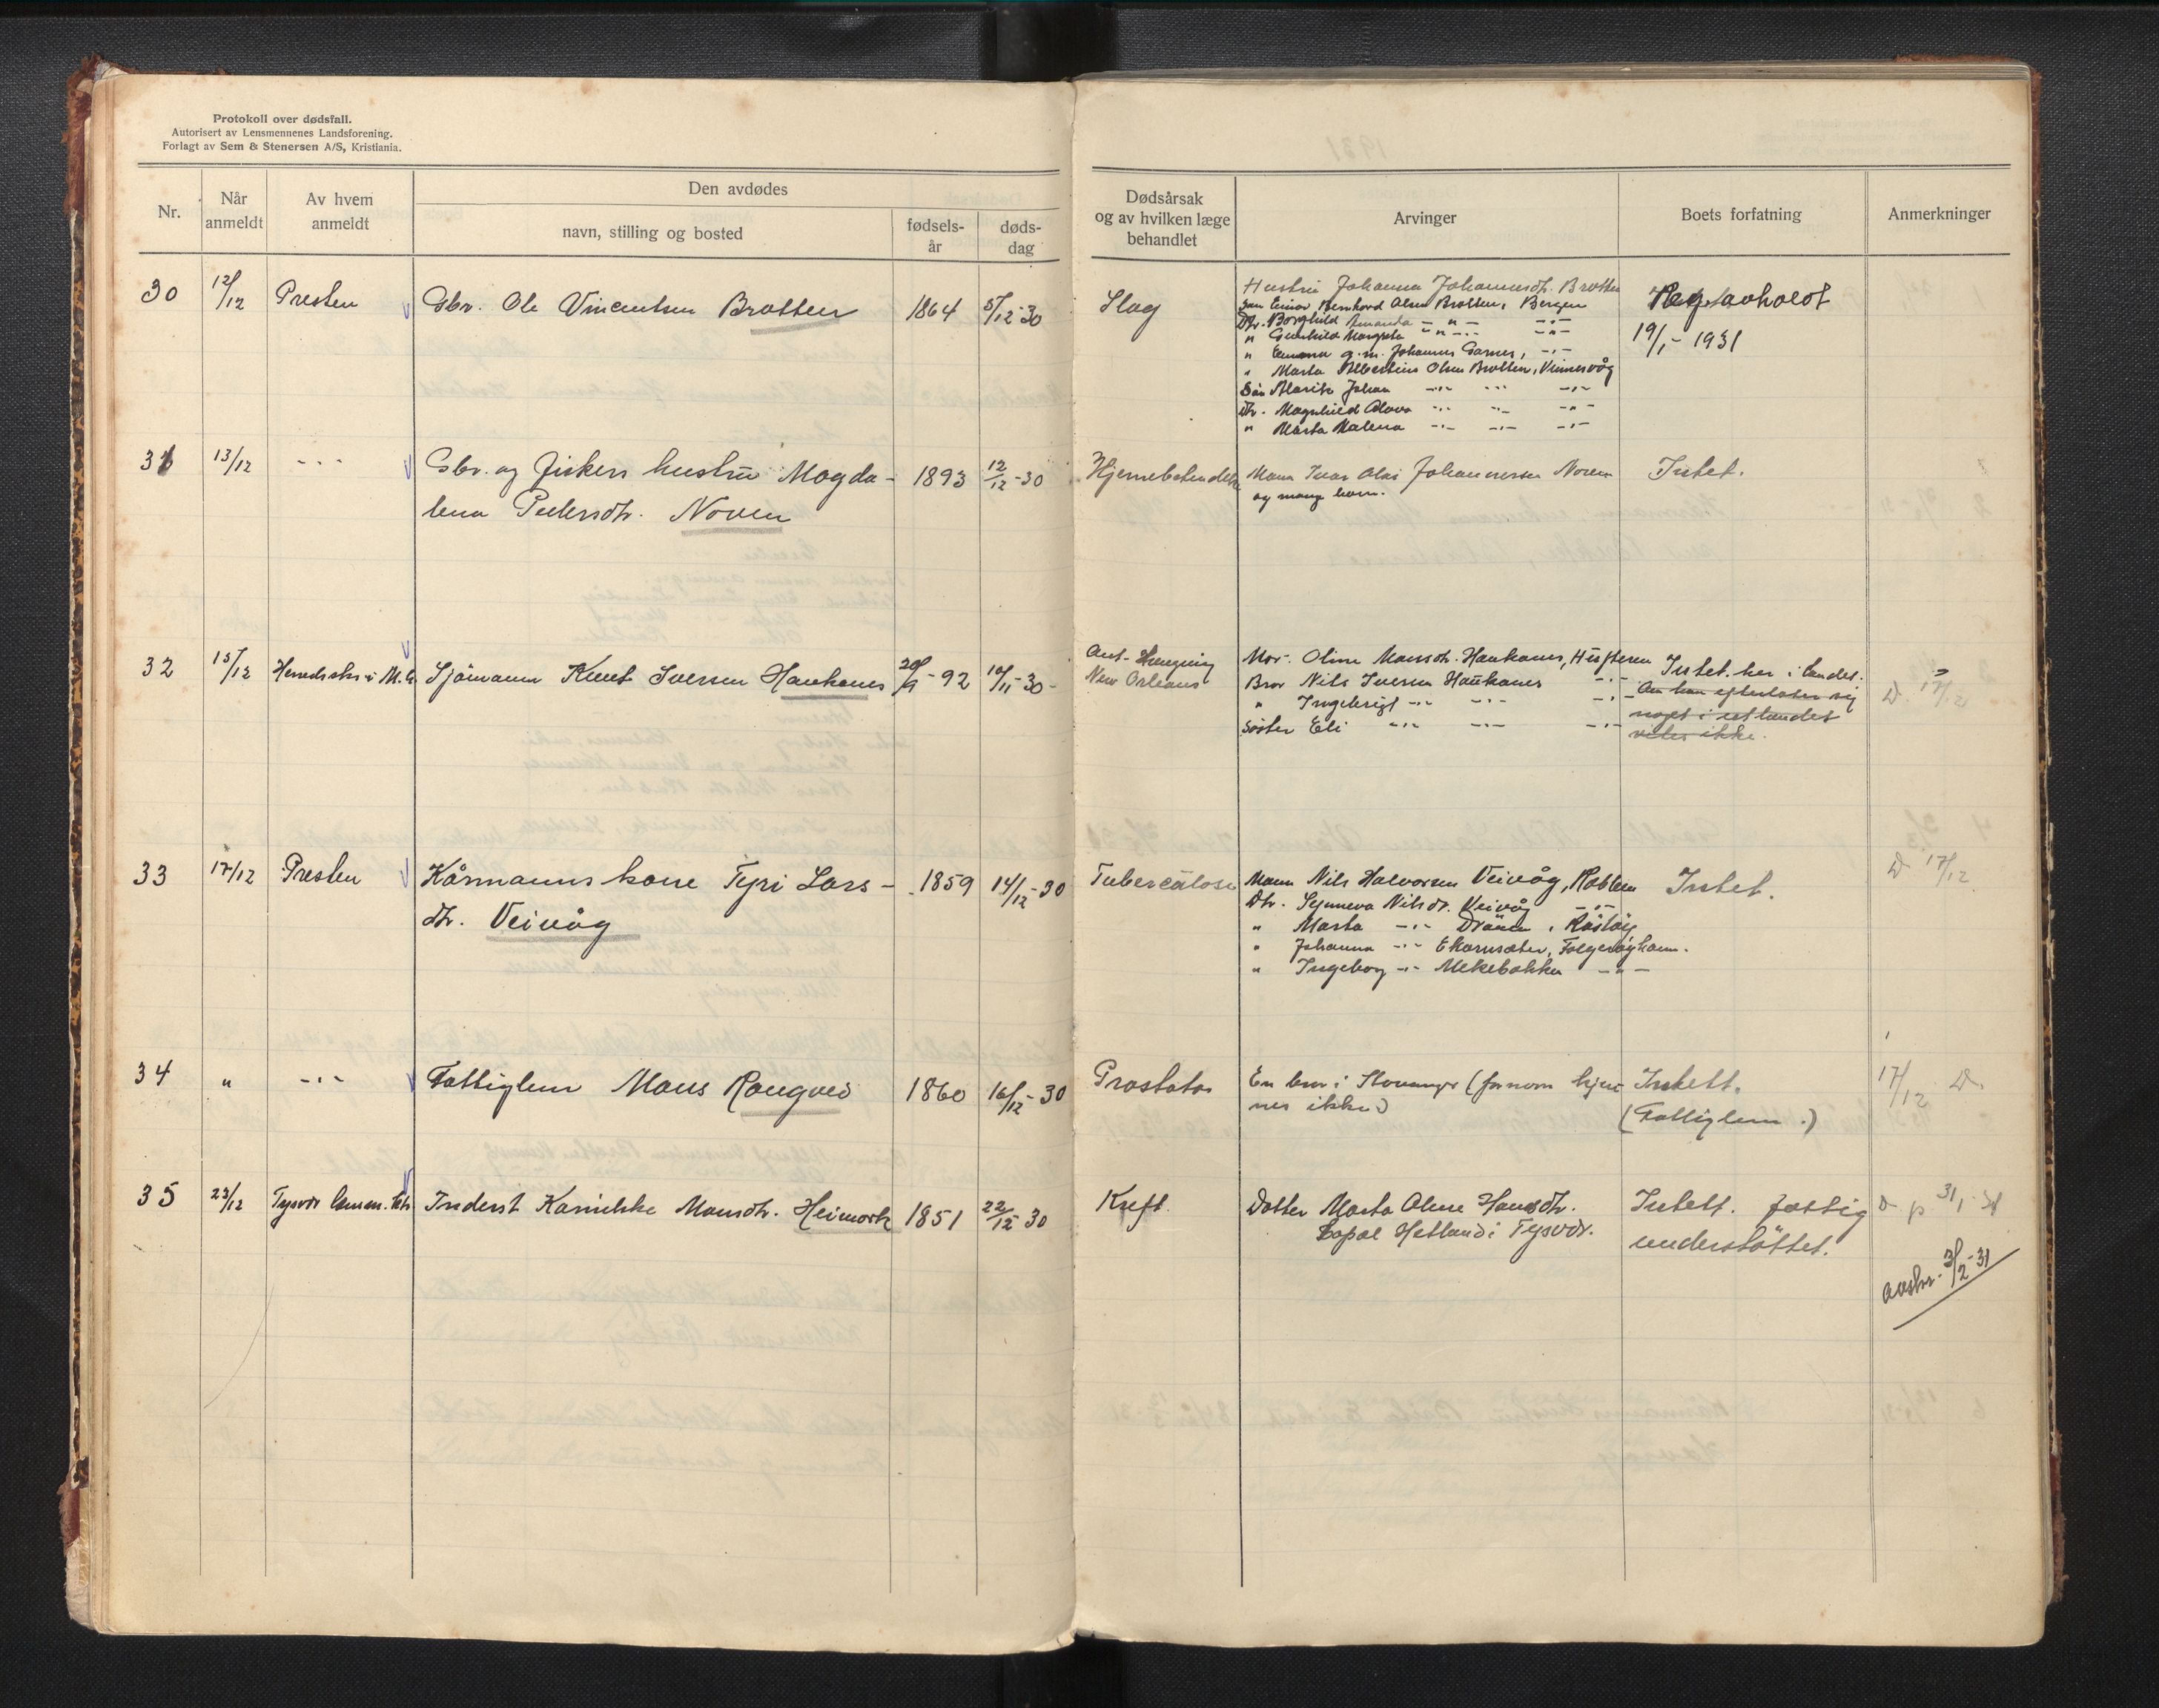 Protokoll over dødsfall.
Autorisert av Lensmennenes Landsforening.
Forlagt av Sem & Stenersen A/S, Kristiania.
Nr.
Når anmeldt
Av hvem anmeldt
Den avdødes
navn, stilling og bosted
fødsels-
år
døds-
dag
Dødsårsak
og av hvilken læge
behandlet
Arvinger
Boets forfatning
Anmerkninger
30 12/12 Presten Gbr. Ole Vincentsen Brotten 1864 5/12-30 Slag
Hustru Johanna Johannesdtr. Brotten
Søn Einar Bernhard Olsen Brotten, Bergen
Dtr. Borghild Amanda -"- -"-
" Gunhild Margreta -"- -"-
" Emma g.m. Johannes Garnes, -"-
" Marta Albertine Olsen Brotten, Vinnesvåg
Søn Marit Johan -"- -"- -"-
Dtr. Magnhild Olava -"- -"- -"-
" Marta Malena -"- -"- -"-
Reg. avholdt
19/1-1931
31 13/12 -"- Gbr. og fiskers hustru Magda-
lena Pedersdtr. Noven
1893 12/12-30 Hjernebetendelse
Mann Ivar Olai Johannessen Noven
og mange barn.
Intet.
32 15/12 Sjømann Knut Iversen Haukanes 20/9-92 10/11-30
Ant. Hengning
New Orleans
Mor. Oline Mansdtr. Haukanes, Husteren
Bror Nils Iversen Haukanes -"-
" Ingebrigt -"- -"- -"-
Søster Eli -"- -"- -"-
Intet her i landet.
Om han efterlater sig
noget i utlandet
vites ikke.
D. 17/12
33 17/12 Presten Kårmanns kone Tyri Lars-
dtr. Veivåg
1859 14/12-30 Tuberculose
Mann Nils Halvorsen Veivåg, Rabben
Dtr. Synneva Nilsdtr. Veivåg -"-
" Marta -"-
" Johanna -"- Ekornsæter, Folgerøyhamn.
" Ingeborg -"- Mekebakken -"-
Intet.
D 17/12
34 " -"- Fattiglem Mons Rangved 1860 16/12-30 Prostata
En bror i Stavanger (fornavn kjen-
nes ikke)
Intett.
(Fattiglem.)
17/12 D.
35 23/12 Tysvær Inderst Kamilske Monsdtr. Heimark 1851 22/12-30 Kreft.
Datter Marta Oline Hansdtr.
Hetland i Tysvær.
Intett. fattig
understøttet.
D p 31/1-31
avskr. 3/2-31